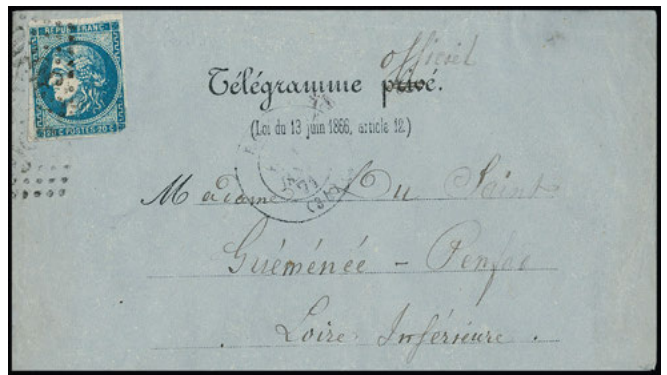 REPUB. FRANC.
20 C POSTES 20 C
officiel
Télégramme privé.
(Loi du 13 juin 1866, article 12.)
71
Madame Du Saint
Guéménée - Penfao
Loire Inférieure.